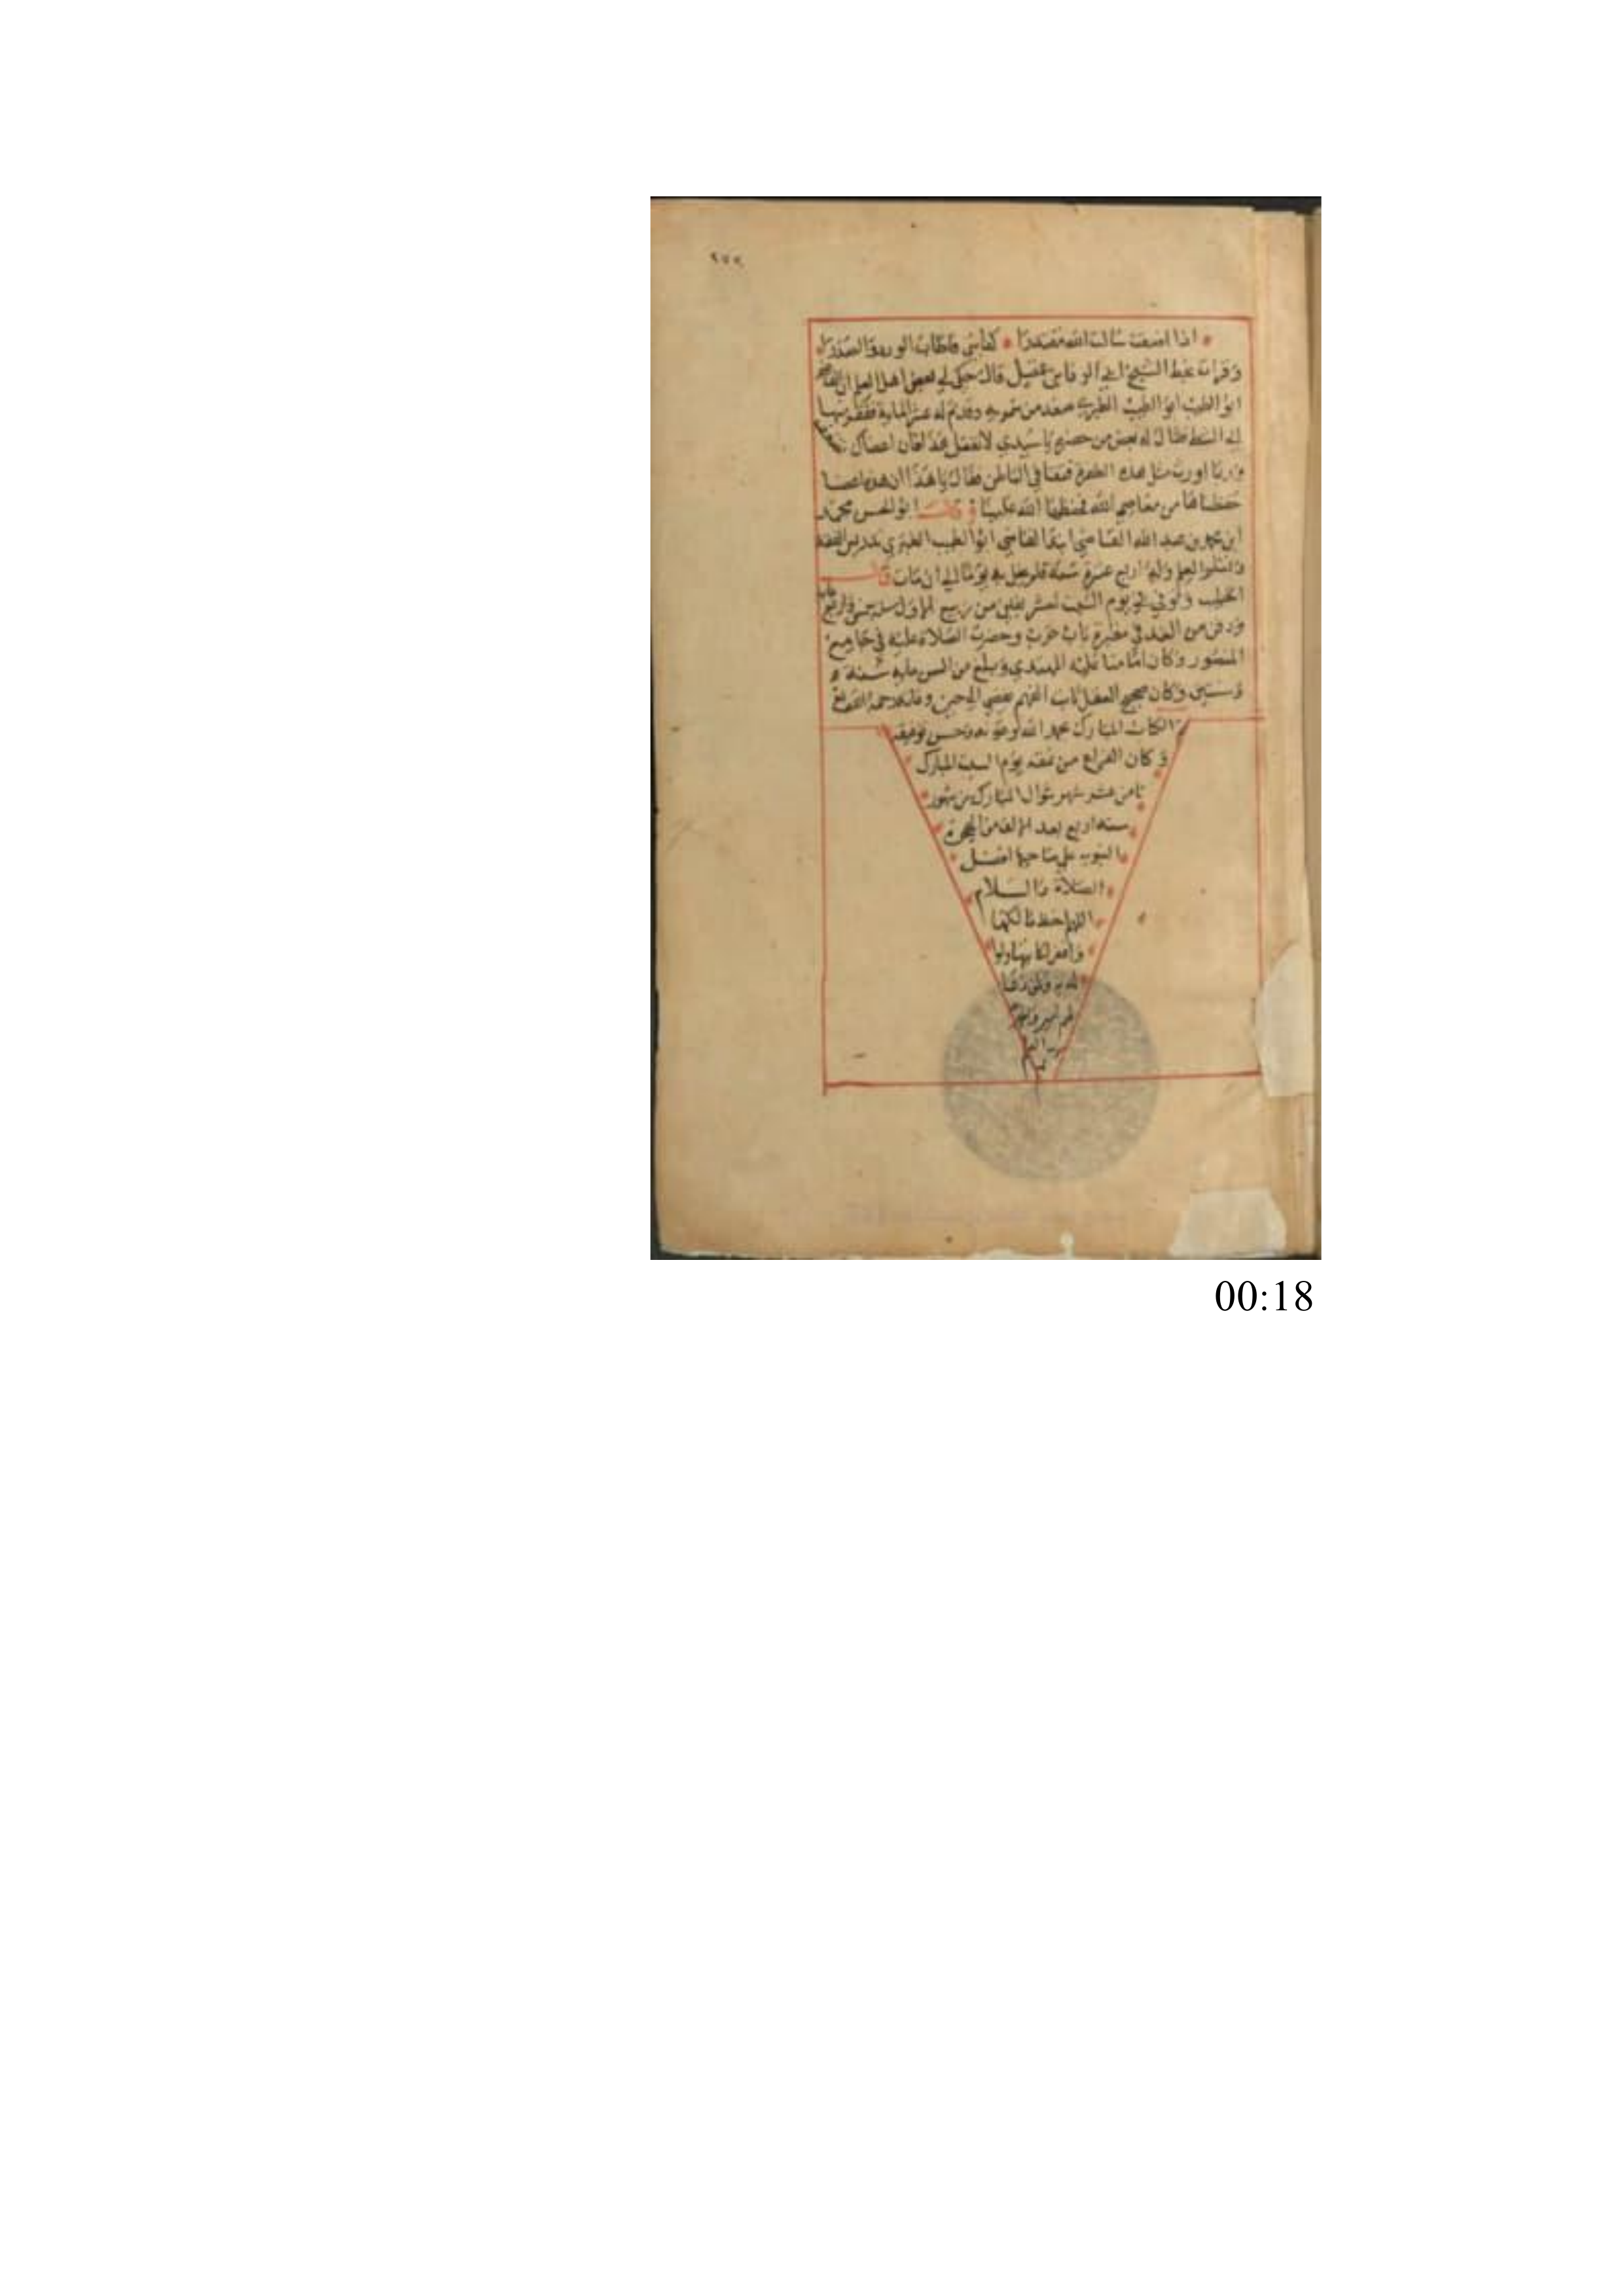 اذا اضفت سالت الله مقتدرا كفايتي فاطاب الورد والصدرا
وقرات بخط الشيخ ابي الوفا بن عقيل قال حكي لي بعض اهل العلم ان القاضي
ابو الطيب ابو الطيب الطبري صعد من سميريه وقد تم له عشر الماية فقفز منها
الى الشط فقال له بعض من حضر يا سيدي لا تفعل هذا فان اعضاك
وربما اورث مثل هذه الطفرة فتقا في الباطن فقال يا هذا ان هذه اعضا
حفظناها من معاصي الله فحفظها الله علينا وقال ابو الحسن محمد
ابن محمد بن عبد الله القاضي ابتدا القاضي ابو الطيب الطبري بدرس الفقه
العلم وله اربع عشرة سنة فلم يخل به يوما الى ان مات قال
الخطيب وتوفي يوم السبت لعشر بقين من ربيع الاول سنة خمسين واربع
ودفن من الغد في مقبرة باب حرب وحضرت الصلاة عليه في جامع
المنصور وكان امامنا عليه المهتدي وبلغ من السن ماية سنة
وسنتين وكان صحيح العقل ثابت الفهم يقضي الى حين وفاته رحمه الله
تم الكتاب المبارك بحمد الله وعونه وحسن توفيقه
وكان الفراغ من يوم السبت المبارك
ثامن عشر شهر شوال المبارك من شهور
سنة اربع بعد الالف من الهجرة
النبوية على صاحبها افضل
الصلاة والسلام
اللهم احفظ مالكها
واغفر لكاتبها ولوا
لديه ولمن دعا
لهم